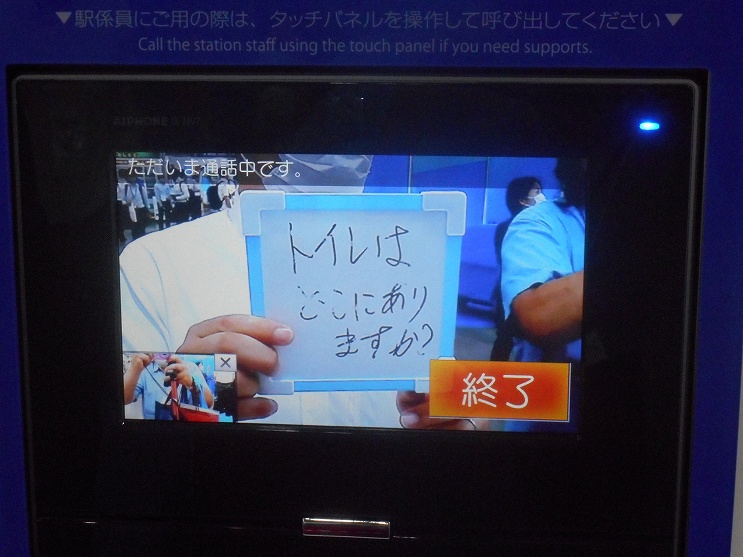 ▼駅係員にご用の際は、タッチパネルを操作して呼び出してください▼
Call the station staff using the touch panel if you need supports.
AIPHONE
ただいま通話中です。
トイレは
どこにあり
ますか?
終了